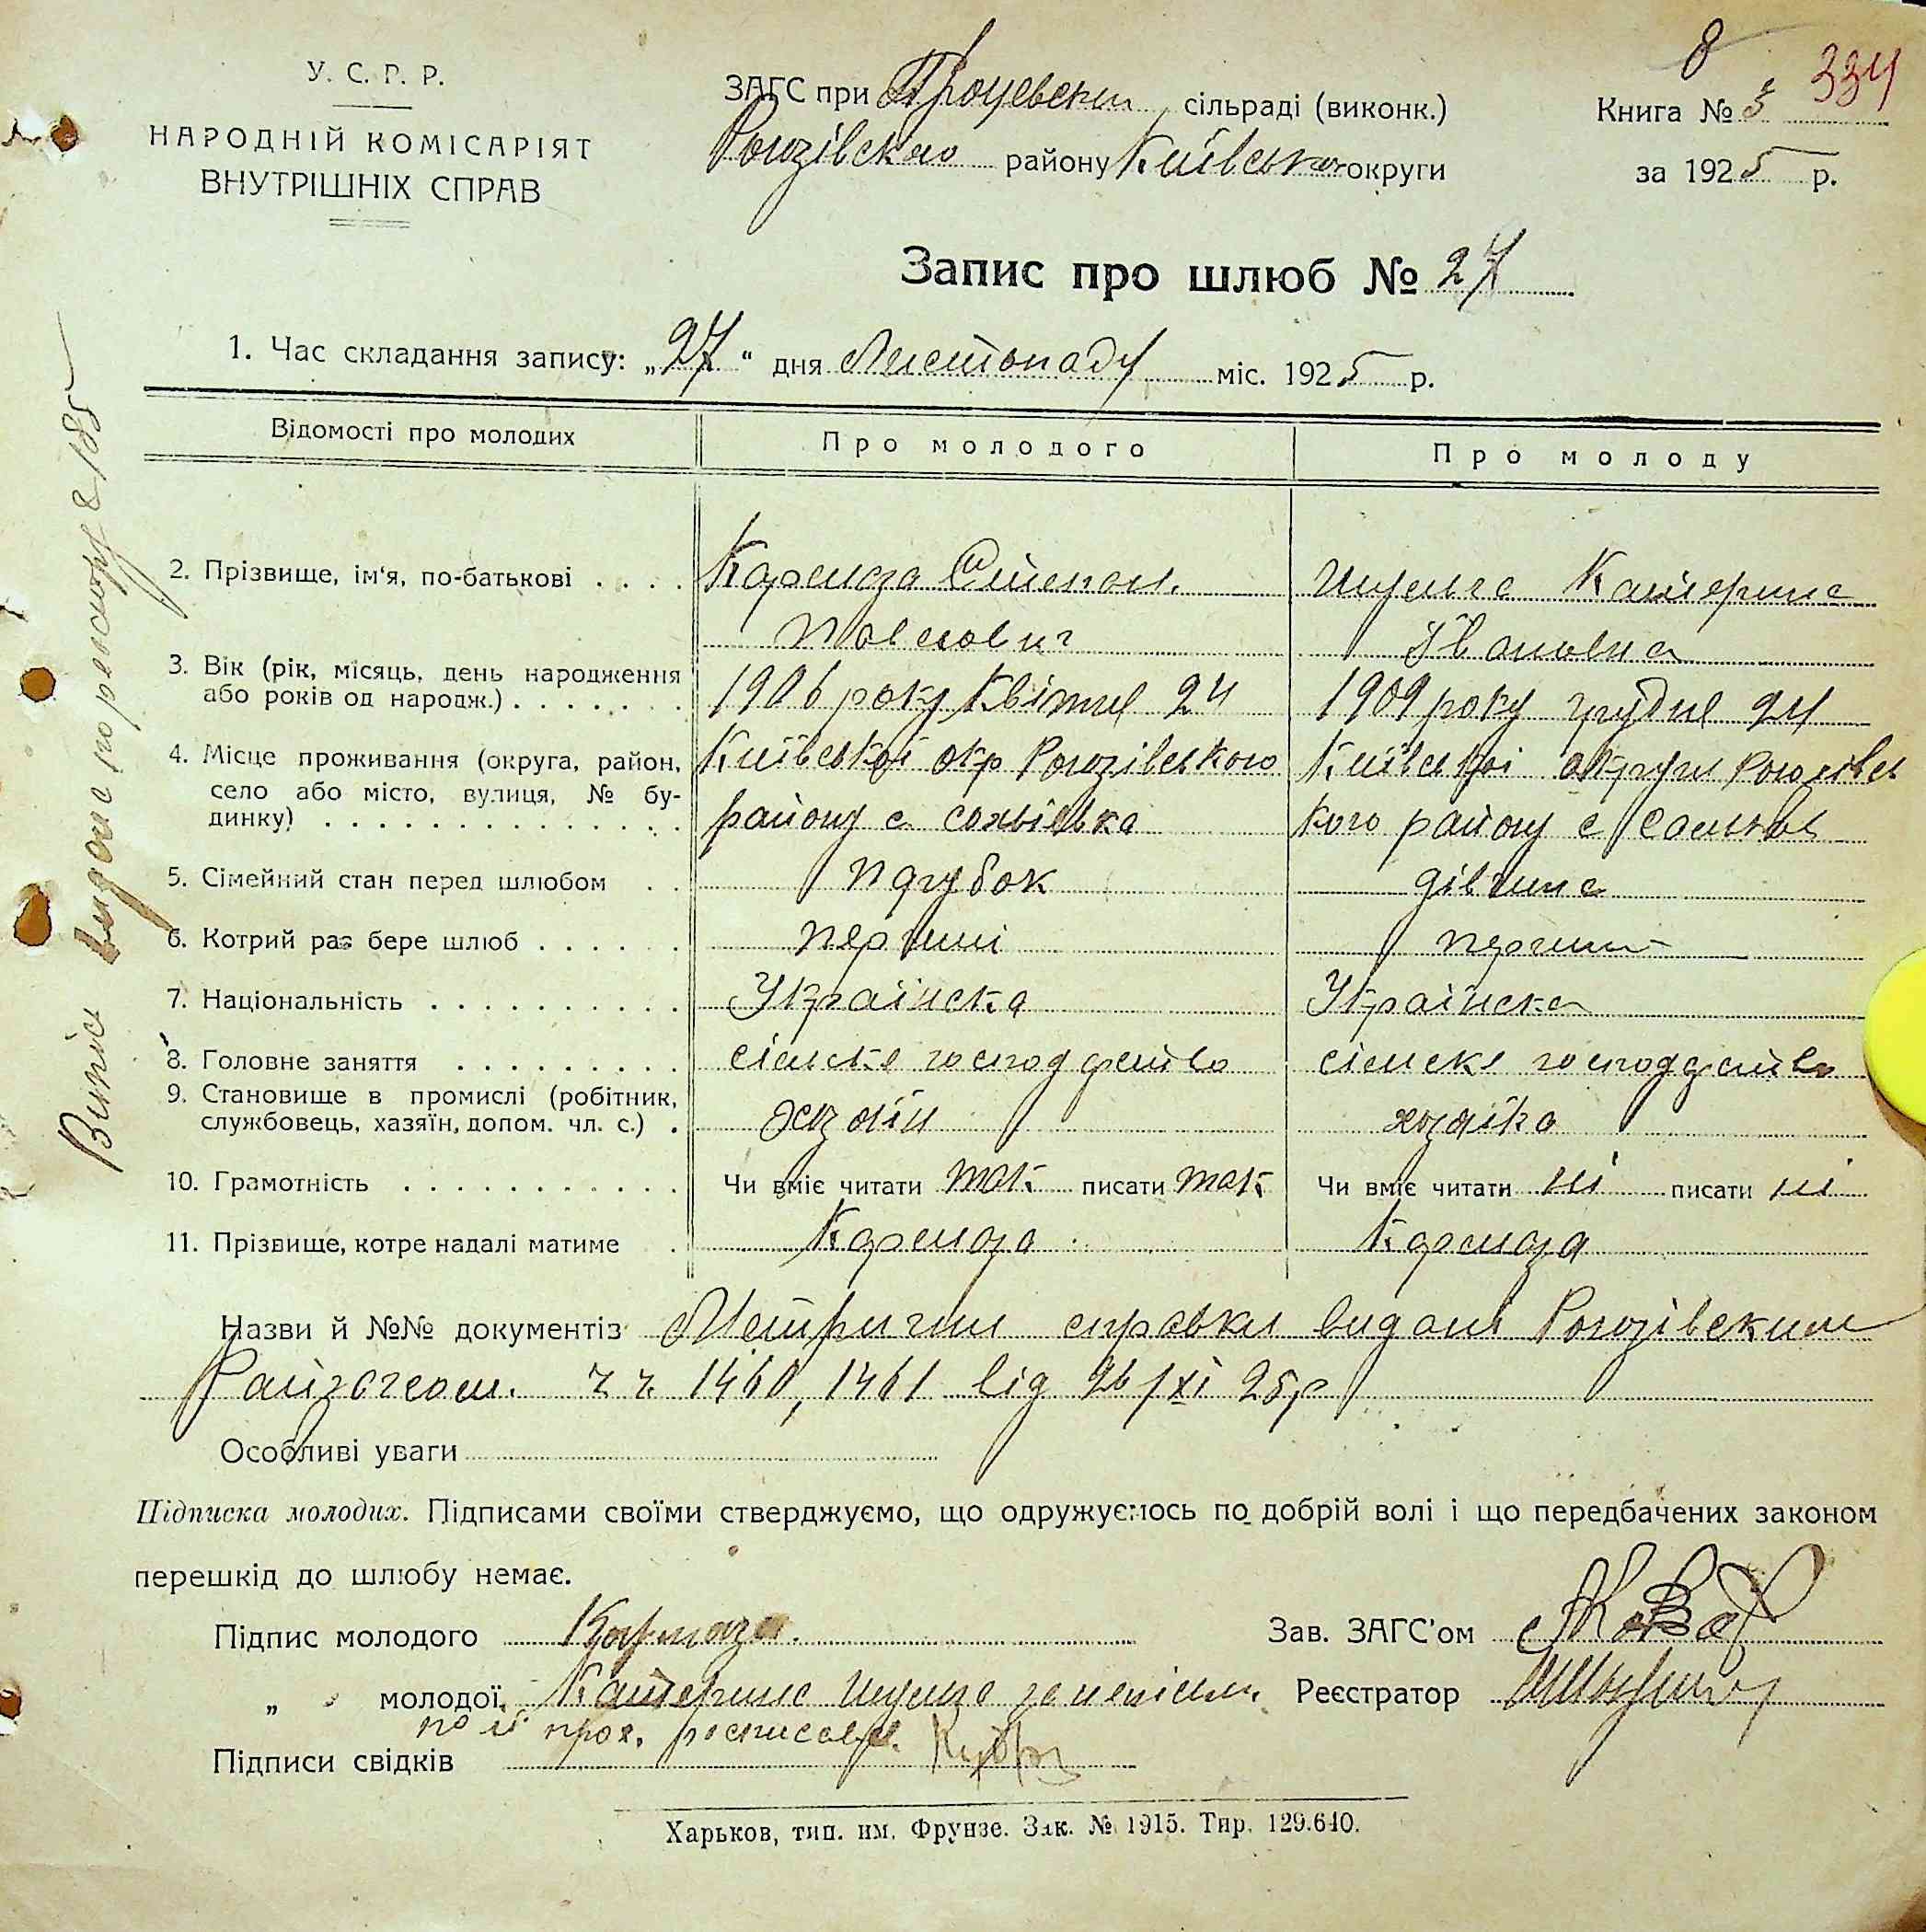 8
334
У. С. Р. Р.
НАРОДНІЙ КОМІСАРІЯТ
ВНУТРІШНІХ СПРАВ
ЗАГС при Процевскій сільраді (виконк.)
Рогозівского району Київської округи
Книга № 3
за 1925 р.
Запис про шлюб № 27
1. Час складання запису: „27" дня Листопаду міс. 1925 р.
Відомості про молодих
Про молодого
Про молоду
2. Прізвище, ім'я, по-батькові
Кармаза Степан
Павлович
Катерина
Івановна
3. Вік (рік, місяць, день народження
або років од народж.)
1906 року Квітня 24
1909 року грудня 24
4. Місце проживання (округа, район,
село або місто, вулиця, № бу-
динку)
Київської окр Рогозівського
району с
Київської округи Рогозівсь
кого району с
5. Сімейний стан перед шлюбом
парубок
дівчина
6. Котрий раз бере шлюб
перший
7. Національність
Українска
Українска
8. Головне заняття
сільске господарство
сільске господарство
9. Становище в промислі (робітник,
службовець, хазяїн, допом. чл. с.)
хазяїн
хазяїка
10. Грамотність
Чи вміє читати так писати так
Чи вміє читати ні писати ні
11. Прізвище, котре надалі матиме
Кармаза
Кармаза
Назви й №№ документів Метричні справки видані Рогозівским
Райзагсом. ч ч. 1460, 1461 від 26/XI 25 р
Особливі уваги
Підписка молодих. Підписами своїми стверджуємо, що одружуємось по добрій волі і що передбачених законом
перешкід до шлюбу немає.
Підпис молодого Кармаза
Зав. ЗАГС'ом
„ молодої Катерина
Реєстратор
по її прох. росписався
Підписи свідків
Харьков, тип. им. Фрунзе. Зак. № 1915. Тир. 129.640.
Випис видано по реєстру